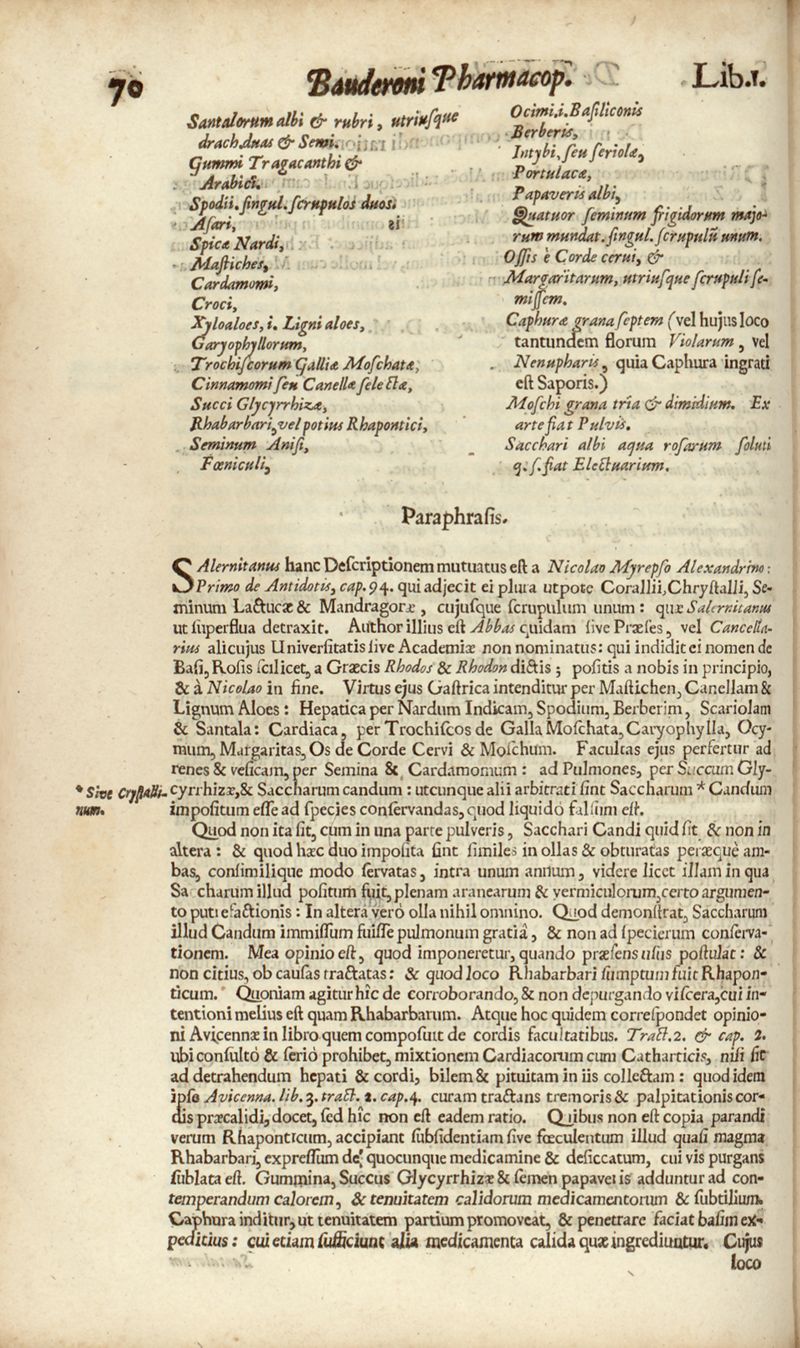 70 Bauderoni Pharmacop. Lib.I.
Santalorum albi & rubri, utriusque
drach.duas & Semi.
Gummi Tragacanthi &
Arabici.
Spodii. singul. scrupulos duos.
Asari,
Spicæ Nardi,
Mastiches,
Cardamomi,
Croci,
Xyloaloes, i. Ligni aloes,
Garyophyllorum,
Trochiscorum Galliæ Moschatæ,
Cinnamomi seu Canellæ selectæ,
Succi Glycyrrhizæ,
Rhabarbari, vel potius Rhapontici,
Seminum Anisi,
Fœniculi,
Ocimi.i.Basiliconis
Berberis,
Intybi, seu seriolæ,
Portulacæ,
Papaveris albi,
Quatuor seminum frigidorum majo-
rum mundat. singul. scrupulũ unum.
Ossis è Corde cerui, &
Margaritarum, utriusque scrupuli se-
missem.
Caphuræ grana septem (vel hujus loco
tantundem florum Violarum, vel
Nenupharis, quia Caphura ingrati
est Saporis.)
Moschi grana tria & dimidium. Ex
arte fiat Pulvis.
Sacchari albi aqua rosarum soluti
q. s. fiat Electuarium.
Paraphrasis.
SAlernitanus hanc Descriptionem mutuatus est a Nicolao Myrepso Alexandrino:
Primo de Antidotis, cap. 94. qui adjecit ei plura utpote Corallii, Chrystalli, Se-
minum Lactucæ & Mandragoræ, cujusque scrupulum unum: quæ Salernitanus
ut superflua detraxit. Author illius est Abbas quidam sive Præses, vel Cancella-
rius alicujus Universitatis sive Academiæ non nominatus: qui indidit ei nomen de
Basi, Rosis scilicet, a Græcis Rhodos & Rhodon dictis; positis a nobis in principio,
& à Nicolao in fine. Virtus ejus Gastrica intenditur per Mastichen, Canellam &
Lignum Aloes: Hepatica per Nardum Indicam, Spodium, Berberim, Scariolam
& Santala: Cardiaca, per Trochiscos de Galla Moschata, Caryophylla, Ocy-
mum, Margaritas, Os de Corde Cervi & Moschum. Facultas ejus perfertur ad
renes & vesicam, per Semina & Cardamomum: ad Pulmones, per Succum Gly-
* Sive Crystalli-
num.
cyrrhizæ, & Saccharum candum: utcunque alii arbitrati sint Saccharum * Candum
impositum esse ad species conservandas, quod liquidò falsum est.
Quod non ita sit, cum in una parte pulveris, Sacchari Candi quid sit & non in
altera: & quod hæc duo imposita sint similes in ollas & obturatas peræquè am-
bas, consimilique modo servatas, intra unum annum, videre licet illam in qua
Saccharum illud positum fuit, plenam aranearum & vermiculorum, certo argumen-
to putrefactionis: In alterâ verò olla nihil omnino. Quod demonstrat, Saccharum
illud Candum immissum fuisse pulmonum gratiâ, & non ad specierum conserva-
tionem. Mea opinio est, quod imponeretur, quando præsens usus postulat: &
non citius, ob causas tractatas: & quod loco Rhabarbari sumptum fuit Rhapon-
ticum. Quoniam agitur hîc de corroborando, & non depurgando viscera, cui in-
tentioni melius est quam Rhabarbarum. Atque hoc quidem correspondet opinio-
ni Avicennæ in libro quem composuit de cordis facultatibus. Tract. 2. & cap. 2.
ubi consultò & seriò prohibet, mixtionem Cardiacorum cum Catharticis, nisi sit
ad detrahendum hepati & cordi, bilem & pituitam in iis collectam: quod idem
ipse Avicenna. lib. 3. tract. 2. cap. 4. curam tractans tremoris & palpitationis cor-
dis præcalidi, docet, sed hîc non est eadem ratio. Quibus non est copia parandi
verum Rhaponticum, accipiant subsidentiam sive fœculentum illud quasi magma
Rhabarbari, expressum de quocunque medicamine & desiccatum, cui vis purgans
sublata est. Gummina, Succus Glycyrrhizæ & semen papaveris adduntur ad con-
temperandum calorem, & tenuitatem calidorum medicamentorum & subtilium.
Caphura inditur, ut tenuitatem partium promoveat, & penetrare faciat basim ex-
peditius: cui etiam sufficiunt alia medicamenta calida quæ ingrediuntur. Cujus
loco